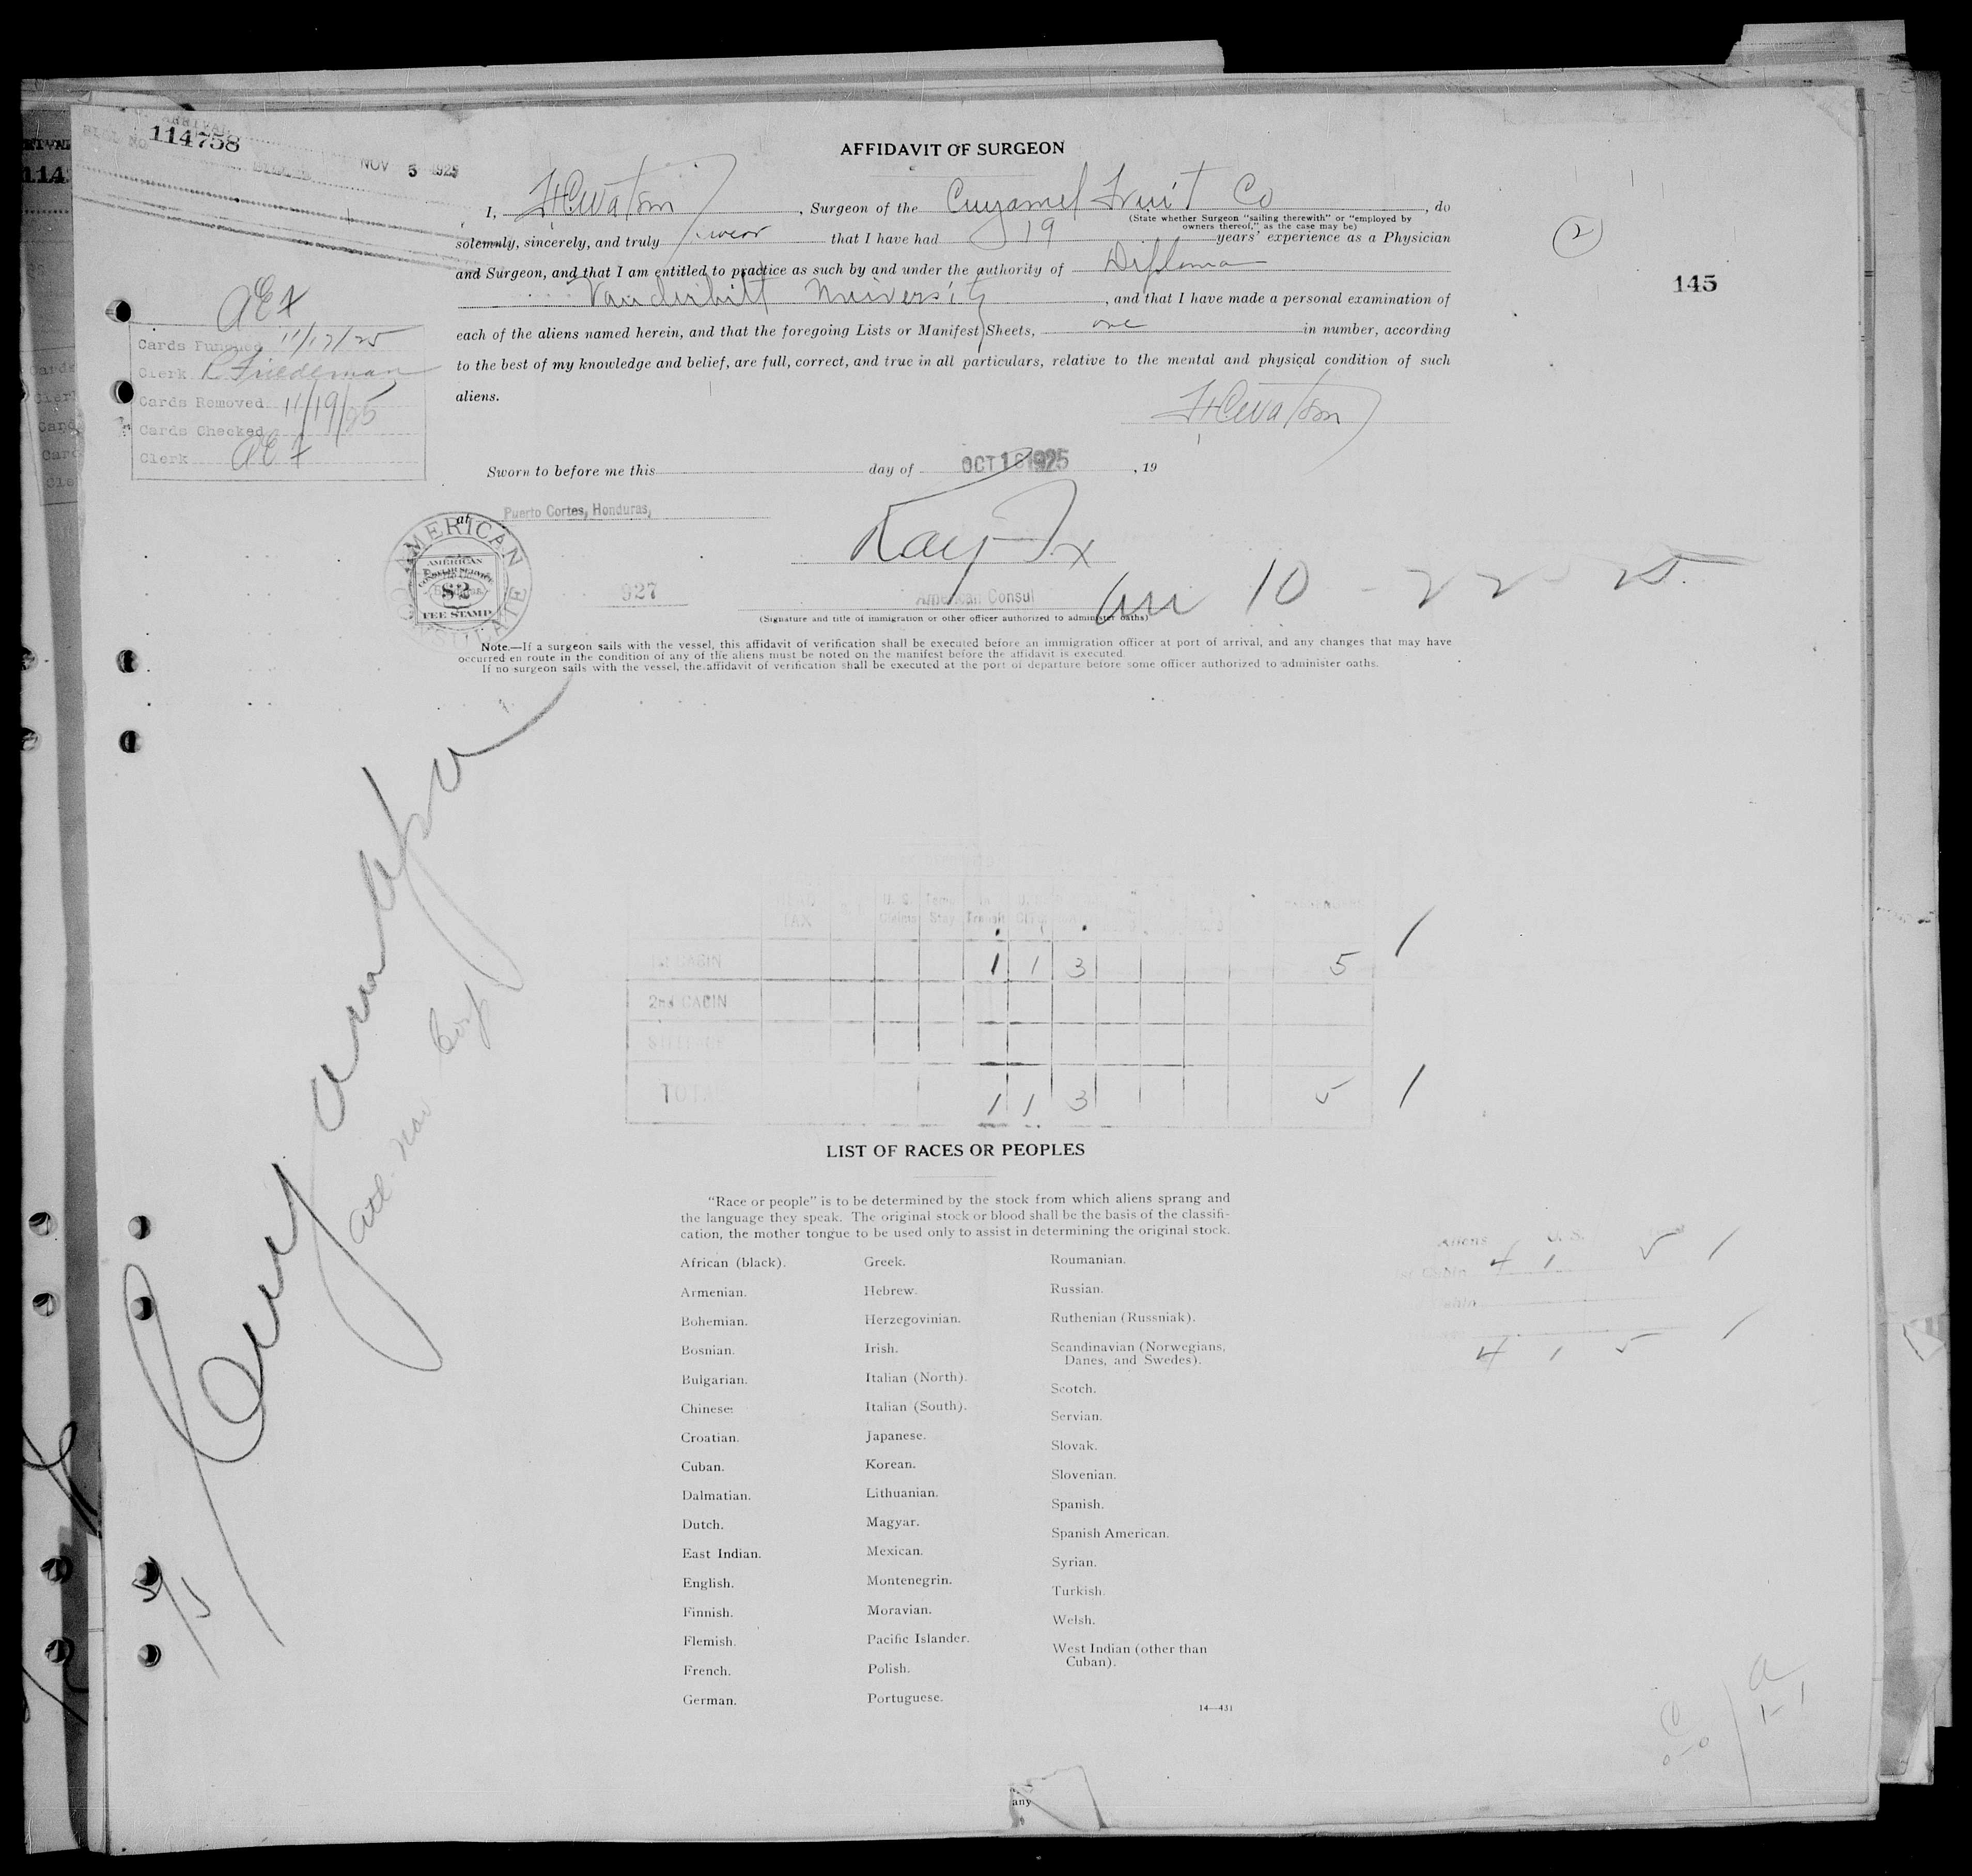 ARRIVAL
114758
NOV 5 1925
114
AFFIDAVIT OF SURGEON
I, HCWatson, Surgeon of the Cuyamel Fruit Co, do
(State whether Surgeon "sailing therewith" or "employed by
owners thereof," as the case may be)
solemnly, sincerely, and truly swear that I have had 19 years' experience as a Physician
and Surgeon, and that I am entitled to practice as such by and under the authority of Diploma
Vanderbilt University, and that I have made a personal examination of
each of the aliens named herein, and that the foregoing Lists or Manifest Sheets, one in number, according
to the best of my knowledge and belief, are full, correct, and true in all particulars, relative to the mental and physical condition of such
aliens.
2
145
Cards Punched 11/17/25
Clerk R Friedeman
Cards Removed 11/19/25
Cards Checked
Clerk
HCWatson
Sworn to before me this day of OCT 16 1925, 19
at Puerto Cortes, Honduras,
AMERICAN CONSULATE
AMERICAN
CONSULAR SERVICE
$2
FEE STAMP
927
Ray Fox
American Consul
10-22-25
(Signature and title of immigration or other officer authorized to administer oaths)
Note.—If a surgeon sails with the vessel, this affidavit of verification shall be executed before an immigration officer at port of arrival, and any changes that may have
occurred en route in the condition of any of the aliens must be noted on the manifest before the affidavit is executed.
If no surgeon sails with the vessel, the affidavit of verification shall be executed at the port of departure before some officer authorized to administer oaths.
TAX U. S. Claims Temp Stay In Transit U. S. CIT
1st CABIN 1 1 3 5 1
2nd CABIN
STEERAGE
TOTAL 1 1 3 5 1
LIST OF RACES OR PEOPLES
"Race or people" is to be determined by the stock from which aliens sprang and
the language they speak. The original stock or blood shall be the basis of the classifi-
cation, the mother tongue to be used only to assist in determining the original stock.
African (black).
Armenian.
Bohemian.
Bosnian.
Bulgarian.
Chinese.
Croatian.
Cuban.
Dalmatian.
Dutch.
East Indian.
English.
Finnish.
Flemish.
French.
German.
Greek.
Hebrew.
Herzegovinian.
Irish.
Italian (North).
Italian (South).
Japanese.
Korean.
Lithuanian.
Magyar.
Mexican.
Montenegrin.
Moravian.
Pacific Islander.
Polish.
Portuguese.
Roumanian.
Russian.
Ruthenian (Russniak).
Scandinavian (Norwegians,
Danes, and Swedes).
Scotch.
Servian.
Slovak.
Slovenian.
Spanish.
Spanish American.
Syrian.
Turkish.
Welsh.
West Indian (other than
Cuban).
14—431
Aliens U. S.
1st Cabin 4 1 5 1
4 1 5 1
any